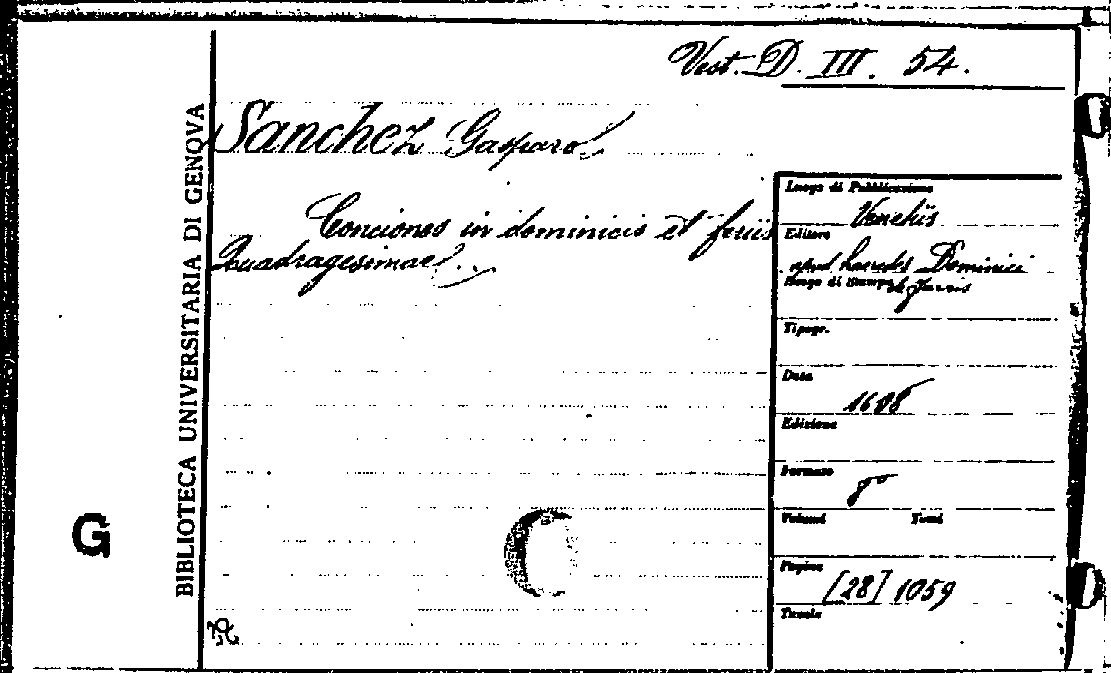 Vest. D. III. 54.
Sanchez Gasparo
Conciones in dominicis et feriis
Quadragesimae
BIBLIOTECA UNIVERSITARIA DI GENOVA
G
Luogo di Pubblicazione
Venetiis
Editore
apud haeredes Dominici
Luogo di Stampa de Farris
Tipogr.
Data
1608
Edizione
Formato
8°
Volumi Tomi
Pagine
[28] 1059
Tavole